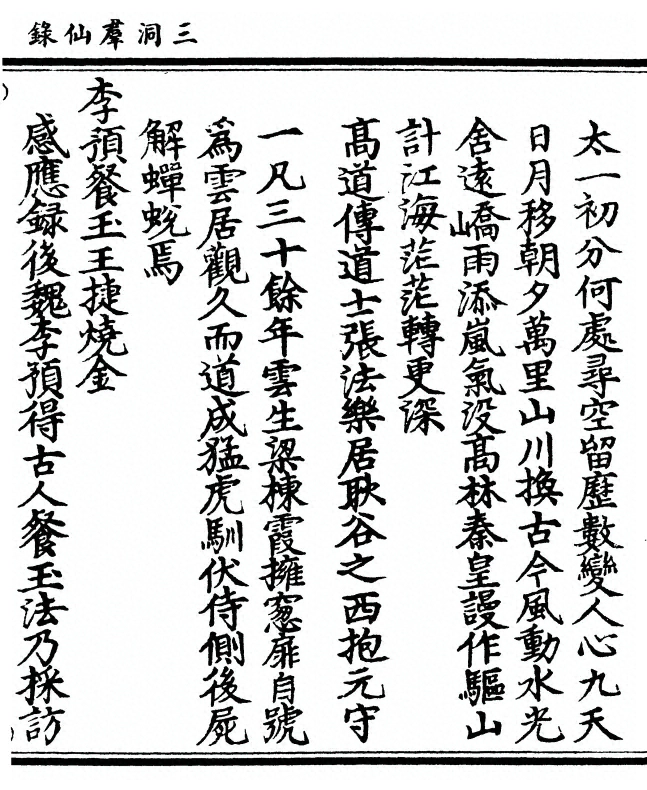 三洞羣仙錄
太一初分何處尋空留歷數變人心九天
日月移朝夕萬里山川換古今風動水光
舍遠嶠雨添嵐氣没髙林秦皇謾作驅山
計江海茫茫轉更深
髙道傳道士張法樂居耿谷之西抱元守
一凡三十餘年雲生梁棟霞擁窓扉自號
爲雲居觀久而道成猛虎馴伏侍側後屍
解蟬蛻焉
李預餐玉王捷燒金
感應録後魏李預得古人餐玉法乃採訪